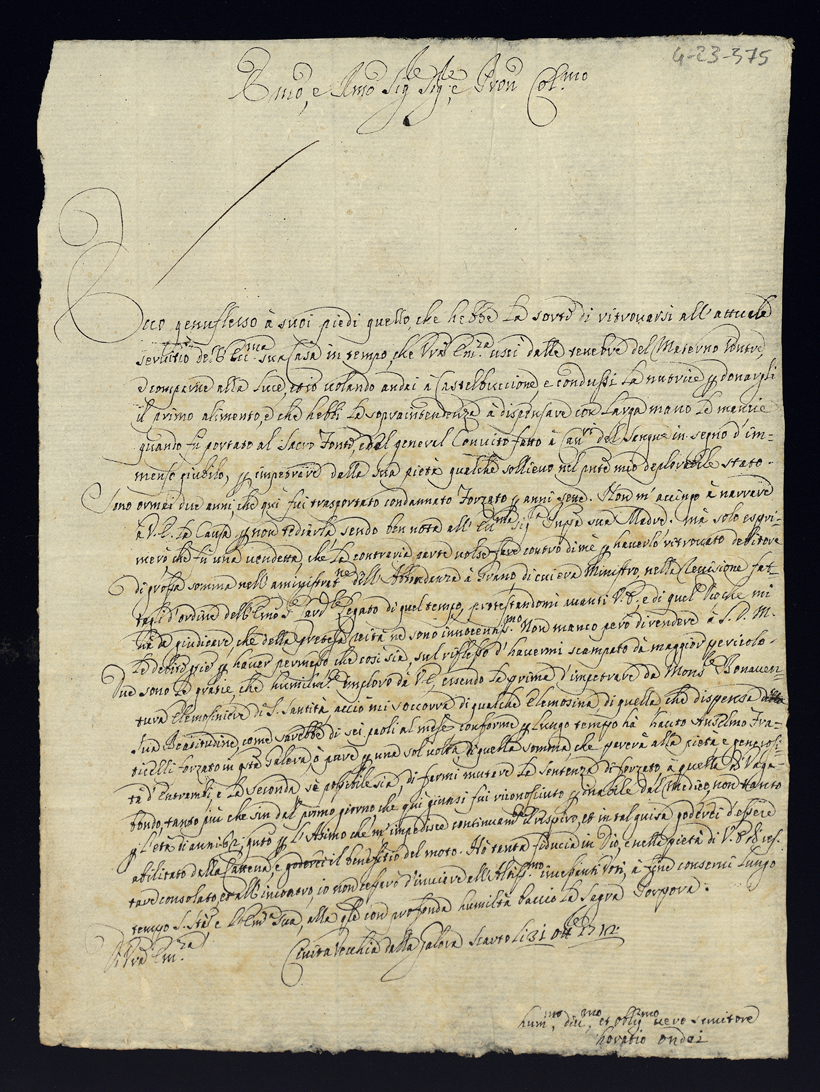 4-23-375
Emo, e Rmo Sig.re Sig.re, e Pron Col.mo
Ecco genuflesso à suoi piedi quello, che hebbe la sorte di ritrovarsi all'attuale
servitio dell'Ecc.ma sua Casa in tempo, che Vra Em.za uscì dalle tenebre del Materno Ventre,
e comparve alla luce, ecco volando andai à Castelbuccione, e condussi la nutrice p donargli
il primo alimento, e che hebbi la sopraintendenza à dispensare con larga mano le mancie
quando fù portato al Sacro Fonte, e del general Convito fatto à del Sangue in segno d'im=
menso giubilo, p impetrare dalla sua pietà qualche sollievo nel pnte mio deplorabile stato.
Sono ormai due anni, che quì fui trasportato condannato Forzato p anni Non m'accingo à narrare
à V.E. la Causa p non tediarla sendo ben nota all' Sig.ra sua Madre, mà solo espri=
merò che fù una vendetta, che la contraria parte volse fare contro di mè p haverlo ritrovato debitore
di grossa somma nell'aministrat.ne dell'Abbondanza à Grano di cui era Ministro, nella Revisione fat=
tagli d'ordine dell'Emo Legato di quel tempo, protestandomi avanti V.E., e di quel Dio che mi
hà da giudicare, che della pretesa reità ne sono innocentiss.mo Non manco però di rendere à S. D. M.
le debite gratie p haver permesso che così sia, sul riflesso d'havermi scampato da maggior pericolo.
Due sono le gratie, che humilm.te imploro da V.E., essendo la prima d'impetrare da Mons.re Bonaven=
tura Elemosiniere di S. Santità acciò mi soccorra di qualche Elemosina, di quella che dispensa
Sua Beatitudine, come sarebbe di sei paoli al mese conforme p lungo tempo hà hauto Anselmo Fra=
ticelli forzato in qta Galera, ò pure p una sol volta di quella somma, che parerà alla pietà e
tà d'Entrambi, e la seconda sè possibile sia, di farmi mutare la sentenza di forzato, à quella di Vaga=
bondo, tanto più che sin dal primo giorno che quì giunsi fui riconosciuto p inabile dal Medico, non tanto
p l'età di anni 62, qnto p l'Asimo che m'impedisce continuam.te il respiro, et in tal guisa poterei d'essere
abilitato della Catena, e goderei il benefitio del moto. Hò tanta fiducia in Dio, e nelle pietà di V.E. di res=
tare consolato, et all'incontro, io non cesserò d'inviare all'Altiss.mo incessanti voti, à fine conservi lungo
tempo S. Stà e l'Em.a Sua, alla qle con profonda humiltà baccio la Sagra Porpora.
Di Vra Em.za
Civita Vecchia dalla Galera li 31 ott.re 1712.
hum.mo, div.mo, et oblig.mo vero servitore
horatio ondei